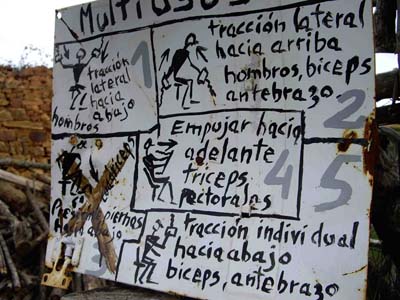 Multiusos
tracción
lateral
hacia
abajo
hombros
1
tracción lateral
hacia arriba
hombros, biceps
antebrazo.
2
Empujar hacia
adelante
triceps
pectorales
4
5
piernas
abajo
3
tracción individual
hacia abajo
biceps, antebrazo